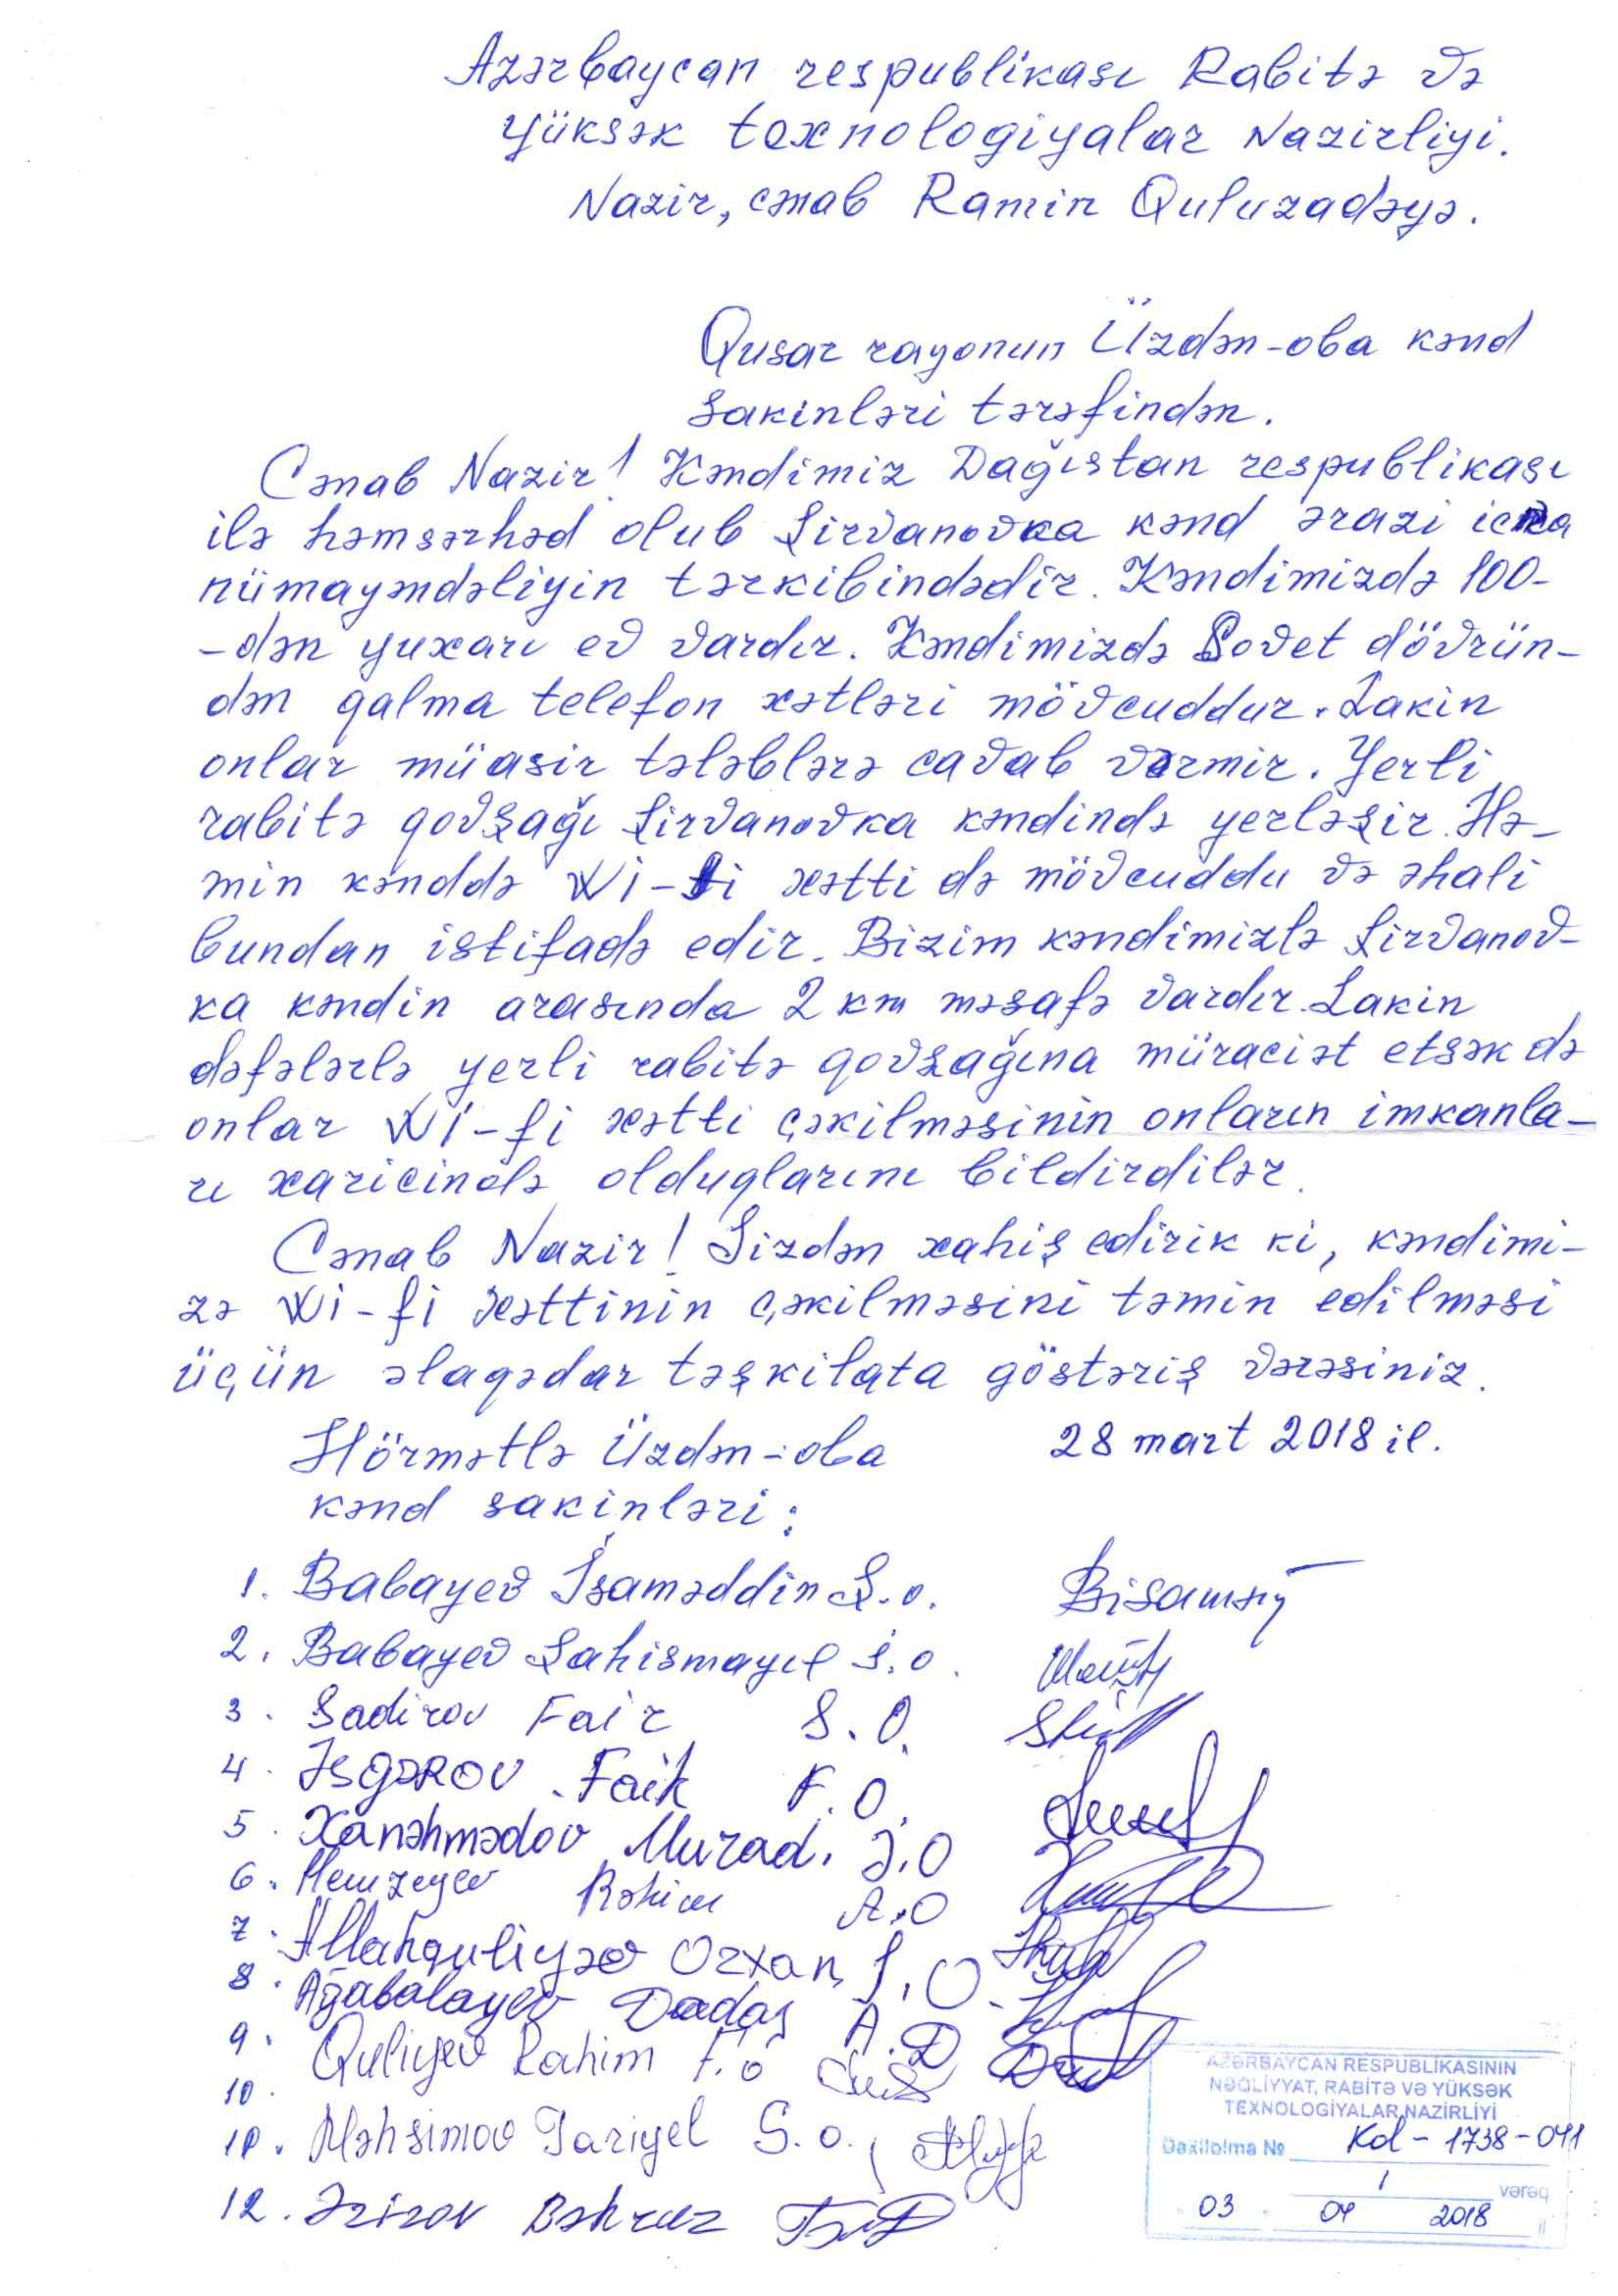 Azərbaycan respublikası Rabitə və
yüksək texnologiyalar Nazirliyi.
Nazir, cənab Ramin Quluzadəyə.
Qusar rayonun Üzdən-oba kənd
sakinləri tərəfindən.
Cənab Nazir! Kəndimiz Dağıstan respublikası
ilə həmsərhəd olub Şirvanovka kənd ərazi icra
nümayəndəliyin tərkibindədir. Kəndimizdə 100-
-dən yuxarı ev vardır. Kəndimizdə Sovet dövrün-
dən qalma telefon xətləri mövcuddur. Lakin
onlar müasir tələblərə cavab vermir. Yerli
rabitə qovşağı Şirvanovka kəndində yerləşir. Hə-
min kənddə Wi-fi xətti də mövcuddu və əhali
bundan istifadə edir. Bizim kəndimizlə Şirvanov-
ka kəndin arasında 2 km məsafə vardır. Lakin
dəfələrlə yerli rabitə qovşağına müraciət etsək də
onlar Wi-fi xətti çəkilməsinin onların imkanla-
rı xaricində olduqlarını bildirdilər.
Cənab Nazir! Sizdən xahiş edirik ki, kəndimi-
zə Wi-fi xəttinin çəkilməsini təmin edilməsi
üçün əlaqədar təşkilata göstəriş verəsiniz.
Hörmətlə Üzdən-oba 28 mart 2018 il.
kənd sakinləri:
1. Babayev İsaməddin Ş.o.
2. Babayev Şahismayıl İ.o.
3. Sadirov Fair S.O.
4. IsgəROV Faik F.O.
5. Xanəhmədov Murad. J.O
6. Rəhim A.O
7. Allahquliyev Orxan I.O.
8. Ağabalayev Dadaş A.D
9. Quliyev Rahim F.o
10.
10. Məhsimov Tariyel S.o.
12. Əzizov Bəhruz
AZƏRBAYCAN RESPUBLİKASININ
NƏQLİYYAT, RABİTƏ VƏ YÜKSƏK
TEXNOLOGİYALAR NAZİRLİYİ
Daxilolma № Kol-1738-041
1 vərəq
03 04 2018 il